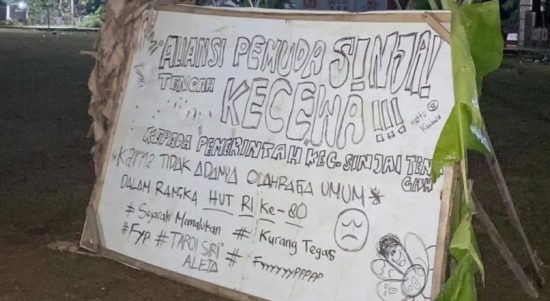 ALIANSI PEMUDA SINJAI
TENGAH
KECEWA!!!
KEPADA PEMERINTAH KEC. SINJAI TEN
GAH
*Karna TIDAK ADANYA OLAHRAGA UMUM*
DALAM RANGKA HUT RI Ke-80
# Sejarah Memalukan # Kurang Tegas
#FYP # TARDI SIRI' # Fyyyyyyppppp
ALETA